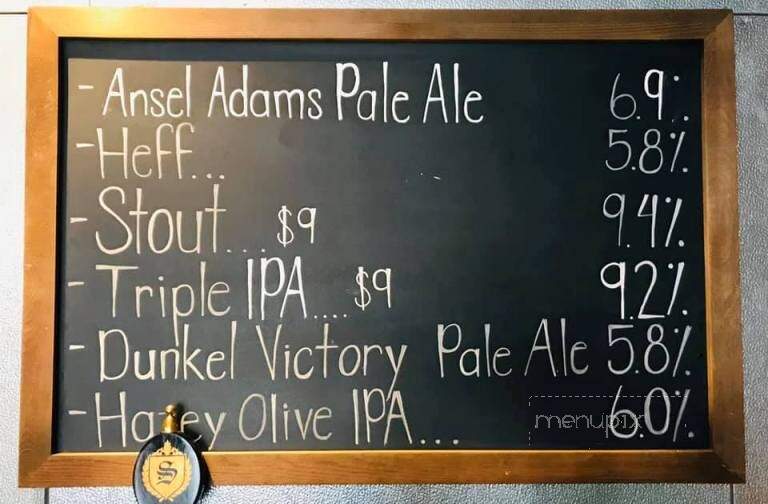 - Ansel Adams Pale Ale 6.9%
- Heff... 5.8%
- Stout... $9 9.4%
- Triple IPA.... $9 9.2%
- Dunkel Victory Pale Ale 5.8%
- Hazey Olive IPA... 6.0%
menupix
S